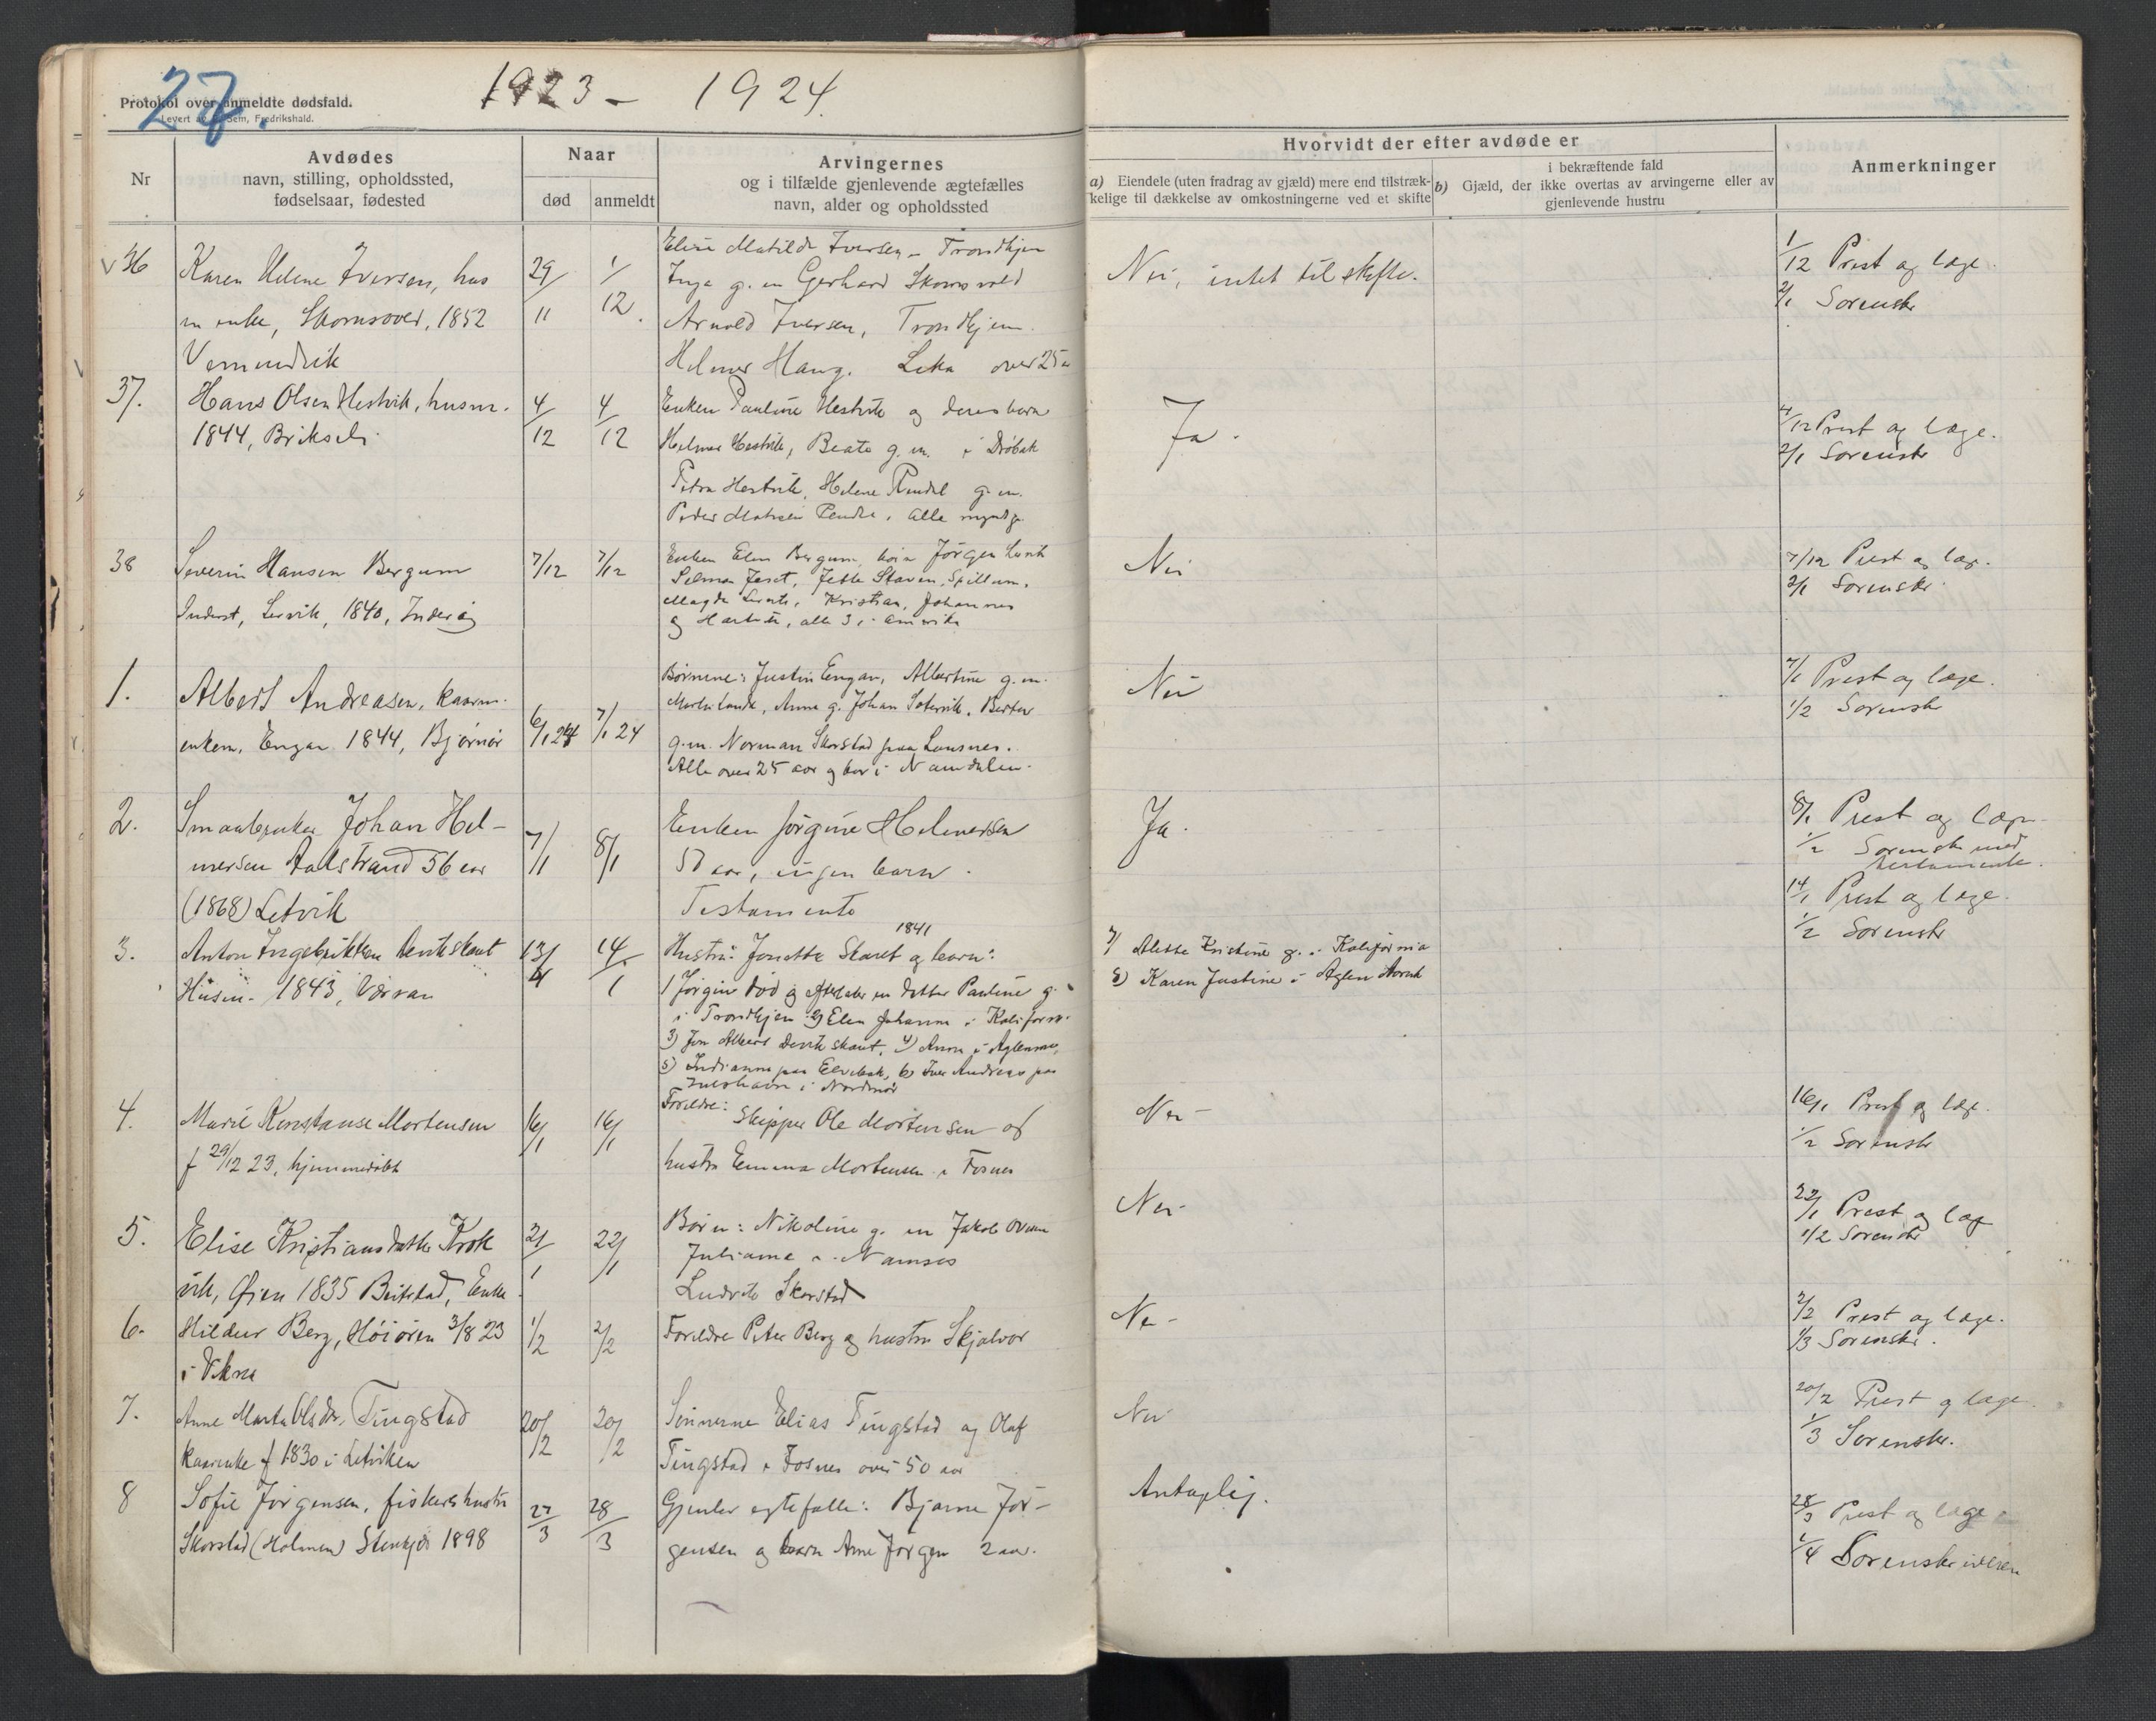 27.
Protokol over anmeldte dødsfald.
Levert av Sem, Fredrikshald.
1923 - 1924
Nr
Avdødes
navn, stilling, opholdssted,
fødselsaar, fødested
Naar
død
anmeldt
Arvingernes
og i tilfælde gjenlevende ægtefælles
navn, alder og opholdssted
Hvorvidt der efter avdøde er
a) Eiendele (uten fradrag av gjæld) mere end tilstræk-
kelige til dækkelse av omkostningerne ved et skifte
i bekræftende fald
b) Gjæld, der ikke overtas av arvingerne eller av
gjenlevende hustru
Anmerkninger
V 36
Karen Helene Iversen, hus
m enke, Skomsvold, 1852
Vemundvik
29/11
1/12.
Elise Matilde Iversen - Trondhjem
Inga g. m Gerhard Skomsvold
Arnold Iversen, Trondhjem.
Helmer Haug. Leka over 25 aar
Nei, intet til skifte.
1/12 Prest og læge.
2/1 Sorenskr
37.
Hans Olsen Hestvik, husm.
1844,
4/12
4/12
Enken Pauline Hestvik og deres barn
Helmer Hestvik, Beate g. m. i Drøbak
Petra Hestvik, Helene g. m.
Peder alle myndige
Ja.
4/12 Prest og læge.
2/1 Sorenskr
38
Severin Hansen Bergum
Inderst, Lervik, 1840, Inderøy
7/12
7/12
Enken Elen Bergum, Jørgen Lervik
Selma Jette Staven, Spillum,
Magda Kristian, Johannes
og alle 3 i Amerika
Nei
7/12 Prest og læge.
2/1 Sorenskr.
1.
Albert Andreasen, kaarm.
enkem. Engan 1844, Bjørnør
6/1 24
7/1 24
Børnene: Justin Engan, Albertine g. m.
Anna g. Johan
g. m. Norman Skorstad paa
Alle over 25 aar og bor i Namdalen.
Nei
7/1 Prest og læge.
1/2 Sorenskr
2.
Smaabruker Johan Hel-
mersen Aalstrand 56 aar
(1868) Letvik
7/1
8/1
Enken Jørgine Helmersen
57 aar, ingen barn.
Testamente
Ja.
8/1 Prest og læge
1/2 Sorenskr med
testamente.
3.
Anton Ingebriktsen
Husm. 1843,
13/1
14/1
1841
Hustru: Jonette Skaret og barn:
1) Jørgine død og efterlater en datter Pauline g.
i Trondhjem 2) Elen Johanne i Kaliforn.
3) Jon Albert 4) Anna i
5) Indianna paa 6) Iver Andreas paa
i Nordmør
7) Alette Kristine g. i Kalifornia
8) Karen Justine i Aglen
14/1 Prest og læge.
1/2 Sorenskr
4.
Marie Konstanse Mortensen
f 29/12 23, hjemmedøbt
16/1
16/1
Forældre: Skipper Ole Mortensen og
hustru Emma Mortensen i Fosnes
Nei
16/1 Prest og læge.
1/2 Sorenskr
5.
Elise Kristiansdatter Krok
vik, Øien 1835 Beitstad, Enke
21/1
22/1
Børn: Nikoline g. m Jakob
Julianne i Namsos
Ludvik Skorstad
Nei
22/1 Prest og læge
1/2 Sorenskr
6.
Hildur Berg, Høiøren 3/8 23
i Vikna
1/2
2/2
Forældre Peter Berg og hustru Skjalvor
Nei
2/2 Prest og læge.
1/3 Sorenskr.
7.
Anne Marta Olsdtr. Tingstad
kaarenke f 1830 i Letviken
20/2
20/2
Sønnerne Elias Tingstad og Olaf
Tingstad i Fosnes over 50 aar
Nei
20/2 Prest og læge.
1/3 Sorenskr.
8
Sofie Jørgensen, fiskershustru
Skorstad (Holmen) Stenkjær 1898
27/3
28/3
Gjenlev egtefælle: Bjarne Jør-
gensen og barn Arne Jørgen 2 aar.
Antagelig.
28/3 Prest og læge
1/4 Sorenskriveren